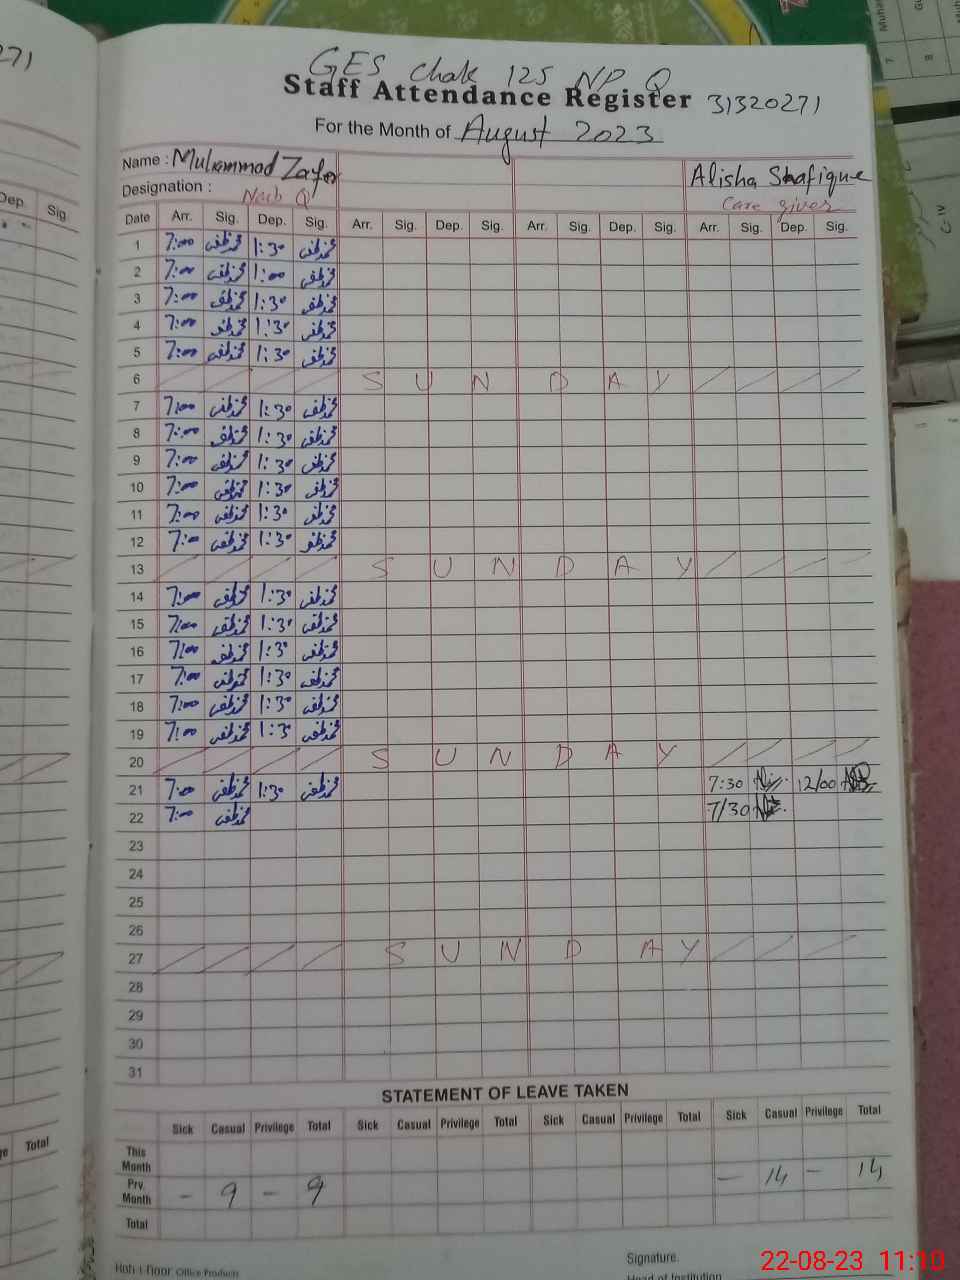 GES Chak 125 NP Q
Staff Attendance Register 31320271
For the Month of August 2023
Name : Muhammad Zafar Alisha Shafique
Designation : Naib Q Care giver
Date Arr. Sig. Dep. Sig. Arr. Sig. Dep. Sig. Arr. Sig. Dep. Sig. Arr. Sig. Dep. Sig.
1 7:00 محمد ظفر 1:30 محمد ظفر
2 7:00 محمد ظفر 1:00 محمد ظفر
3 7:00 محمد ظفر 1:30 محمد ظفر
4 7:00 محمد ظفر 1:30 محمد ظفر
5 7:00 محمد ظفر 1:30 محمد ظفر
6 S U N D A Y
7 7:00 محمد ظفر 1:30 محمد ظفر
8 7:00 محمد ظفر 1:30 محمد ظفر
9 7:00 محمد ظفر 1:30 محمد ظفر
10 7:00 محمد ظفر 1:30 محمد ظفر
11 7:00 محمد ظفر 1:30 محمد ظفر
12 7:00 محمد ظفر 1:30 محمد ظفر
13 S U N D A Y
14 7:00 محمد ظفر 1:30 محمد ظفر
15 7:00 محمد ظفر 1:30 محمد ظفر
16 7:00 محمد ظفر 1:30 محمد ظفر
17 7:00 محمد ظفر 1:30 محمد ظفر
18 7:00 محمد ظفر 1:30 محمد ظفر
19 7:00 محمد ظفر 1:30 محمد ظفر
20 S U N D A Y
21 7:00 محمد ظفر 1:30 محمد ظفر 7:30 12/00
22 7:00 محمد ظفر 7/30
23
24
25
26
27 S U N D A Y
28
29
30
31
STATEMENT OF LEAVE TAKEN
Sick Casual Privilege Total Sick Casual Privilege Total Sick Casual Privilege Total Sick Casual Privilege Total
This Month
Prv. Month - 9 - 9 - 14 - 14
Total
Office Products
Signature.
Head of Institution
22-08-23 11:10